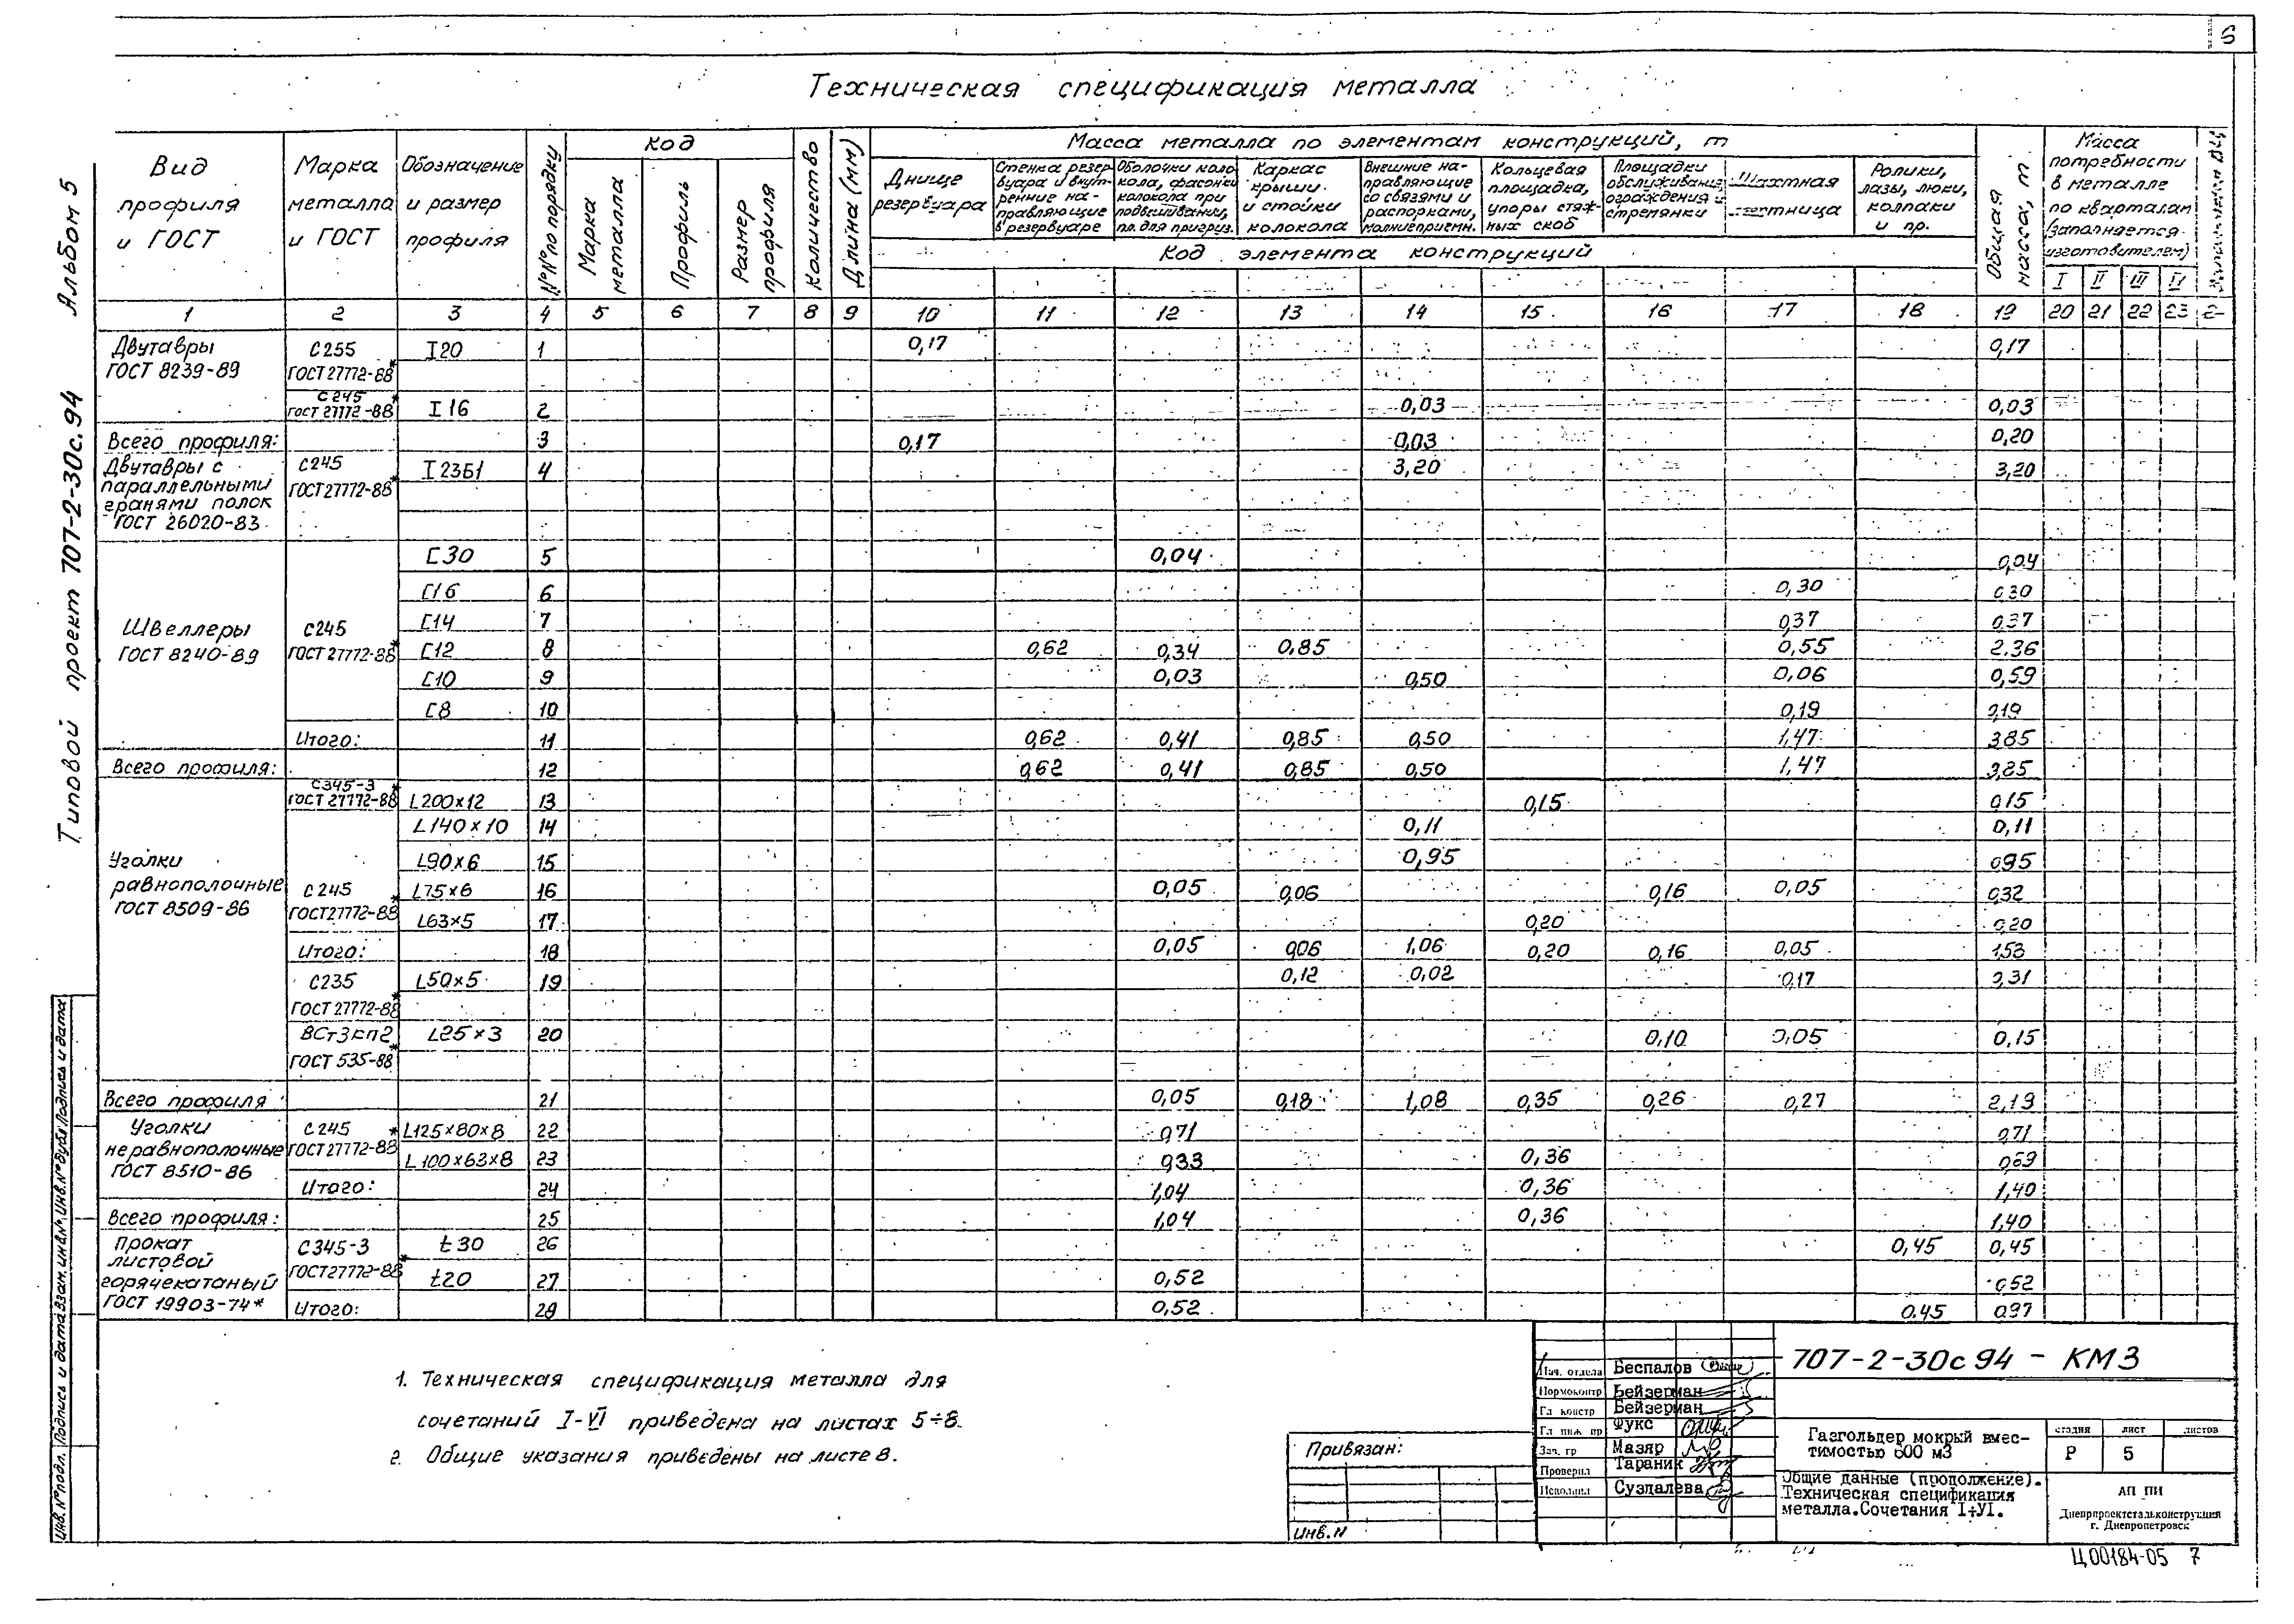 6
Техническая спецификация металла
Альбом 5
Типовой проект 707-2-30с.94
Вид профиля и ГОСТ
Марка металла и ГОСТ
Обозначение и размер профиля
№№ по порядку
Код
Марка металла
Профиль
Размер профиля
Количество
Длина (мм)
Масса металла по элементам конструкций, т
Днище резервуара
Стенка резервуара и внутренние направляющие в резервуаре
Оболочки колокола, фасонки колокола при подвешивании, пл. для пригруз.
Каркас крыши и стойки колокола
Внешние направляющие со связями и распорками, молниеприемн.
Кольцевая площадка, упоры стяжных скоб
Площадки обслуживания, ограждения и стремянки
Шахтная лестница
Ролики, лазы, люки, колпаки и пр.
Код элемента конструкций
Общая масса, т
Масса потребности в металле по кварталам (заполняется изготовителем)
I II III IV
1 2 3 4 5 6 7 8 9 10 11 12 13 14 15 16 17 18 19 20 21 22 23
Двутавры ГОСТ 8239-89
С255 ГОСТ 27772-88* I20 1 0,17 0,17
С245 ГОСТ 27772-88* I16 2 0,03 0,03
Всего профиля: 3 0,17 0,03 0,20
Двутавры с параллельными гранями полок ГОСТ 26020-83
С245 ГОСТ 27772-88* I23Б1 4 3,20 3,20
Швеллеры ГОСТ 8240-89
С245 ГОСТ 27772-88*
[30 5 0,04 0,04
[16 6 0,30 0,30
[14 7 0,37 0,37
[12 8 0,62 0,34 0,85 0,55 2.36
[10 9 0,03 0,50 0,06 0,59
[8 10 0,19 0,19
Итого: 11 0,62 0,41 0,85 0,50 1,47 3,85
Всего профиля: 12 0,62 0,41 0,85 0,50 1,47 3,85
Уголки равнополочные ГОСТ 8509-86
С345-3 ГОСТ 27772-88* L200×12 13 0,15 0,15
L140×10 14 0,11 0,11
L90×6 15 0,95 0,95
С245 ГОСТ 27772-88* L75×6 16 0,05 0,06 0,16 0,05 0,32
L63×5 17 0,20 0,20
Итого: 18 0,05 0,06 1,06 0,20 0,16 0,05 1,53
С235 ГОСТ 27772-88* L50×5 19 0,12 0,02 0,17 0,31
ВСт3кп2 ГОСТ 535-88* L25×3 20 0,10 0,05 0,15
Всего профиля 21 0,05 0,18 1,08 0,35 0,26 0,27 2,19
Уголки неравнополочные ГОСТ 8510-86
С245 ГОСТ 27772-88* L125×80×8 22 0,71 0,71
L100×63×8 23 0,33 0,36 0,69
Итого: 24 1,04 0,36 1,40
Всего профиля: 25 1,04 0,36 1,40
Прокат листовой горячекатаный ГОСТ 19903-74*
С345-3 ГОСТ 27772-88* t30 26 0,45 0,45
t20 27 0,52 0,52
Итого: 28 0,52 0.45 0,97
1. Техническая спецификация металла для
сочетаний I-VI приведена на листах 5÷8.
2. Общие указания приведены на листе 8.
Инв. № подл. Подпись и дата Взам. инв. № Инв. № дубл. Подпись и дата
Привязан:
Инв. N
Нач. отдела Беспалов
Нормоконтр Бейзерман
Гл констр Бейзерман
Гл инж пр Фукс
Зав. гр Мазяр
Проверил Тараник
Исполнил Суздалева
707-2-30с94 - КМ3
Газгольдер мокрый вмес-
тимостью 600 м3
стадия лист листов
Р 5
Общие данные (продолжение).
Техническая спецификация
металла. Сочетания I÷УI.
АП ПИ
Днепрпроектстальконструкция
г. Днепропетровск
Ц00184-05 7